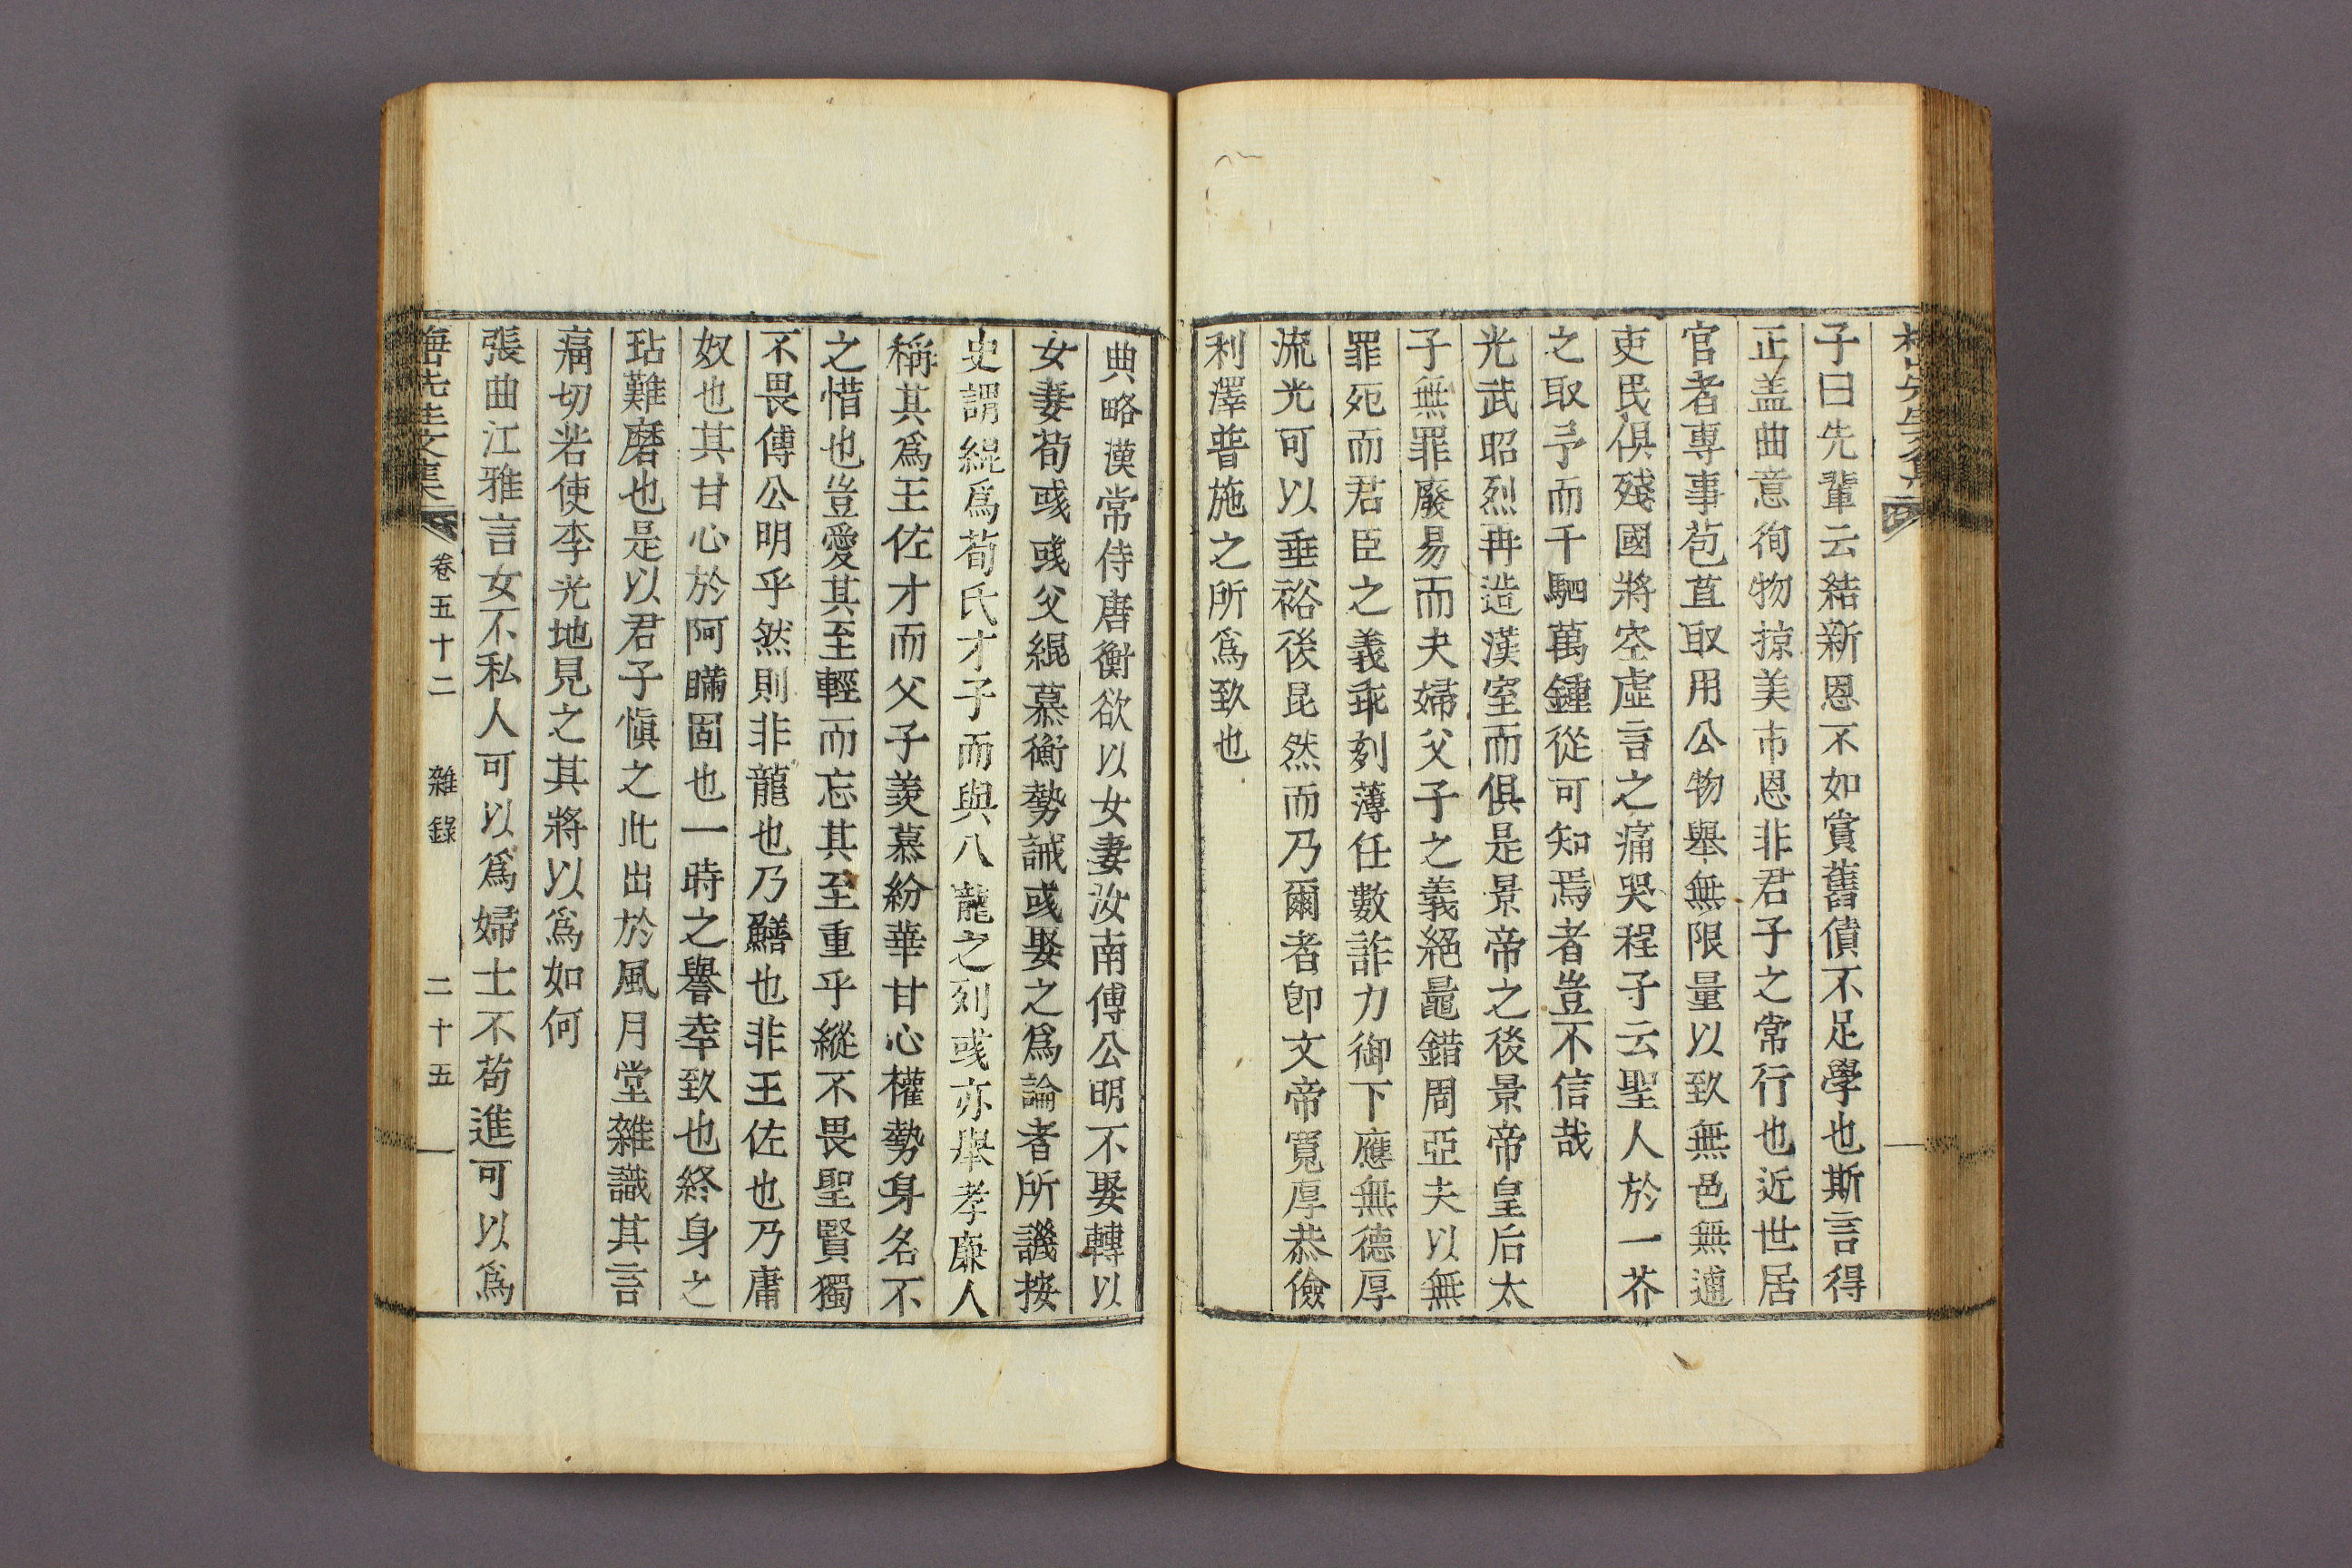 子曰先輩云結新恩不如賞舊債不足學也斯言得
正盖曲意徇物掠美市恩非君子之常行也近世居
官者專事苞苴取用公物舉無限量以致無邑無逋
吏民俱殘國將空虛言之痛哭程子云聖人於一芥
之取予而千駟萬鍾從可知焉者豈不信哉
光武昭烈再造漢室而俱是景帝之後景帝皇后太
子無罪廢易而夫婦父子之義絕鼂錯周亞夫以無
罪死而君臣之義乖刻薄任數詐力御下應無德厚
流光可以垂裕後昆然而乃爾者卽文帝寬厚恭儉
利澤普施之所爲致也
典略漢常侍唐衡欲以女妻汝南傅公明不娶轉以
女妻荀彧彧父緄慕衡勢誡彧娶之爲論者所譏按
史謂緄爲荀氏才子而與八龍之列彧亦擧孝廉人
稱其爲王佐才而父子羨慕紛華甘心權勢身名不
之惜也豈愛其至輕而忘其至重乎縱不畏聖賢獨
不畏傅公明乎然則非龍也乃鱔也非王佐也乃庸
奴也其甘心於阿瞞固也一時之譽幸致也終身之
玷難磨也是以君子愼之此出於風月堂雜識其言
痛切若使李光地見之其將以爲如何
張曲江雅言女不私人可以爲婦士不苟進可以爲
卷五十二 雜錄 二十五